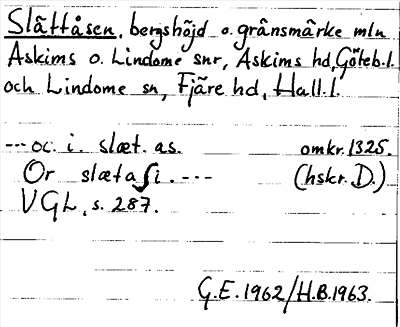 Slättåsen, bergshöjd o. gränsmärke mln
Askims o. Lindome snr, Askims hd, Göteb. l.
och Lindome sn, Fjäre hd, Hall. l.
--- oc. i. slæt. as. omkr. 1325.
Or slæta ſi. --- (hskr. D.)
VGL, s. 287.
G.E. 1962/H.B. 1963.